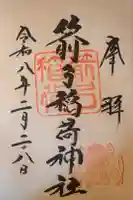 奉拝
箭弓稲荷神社
令和八年二月二八日